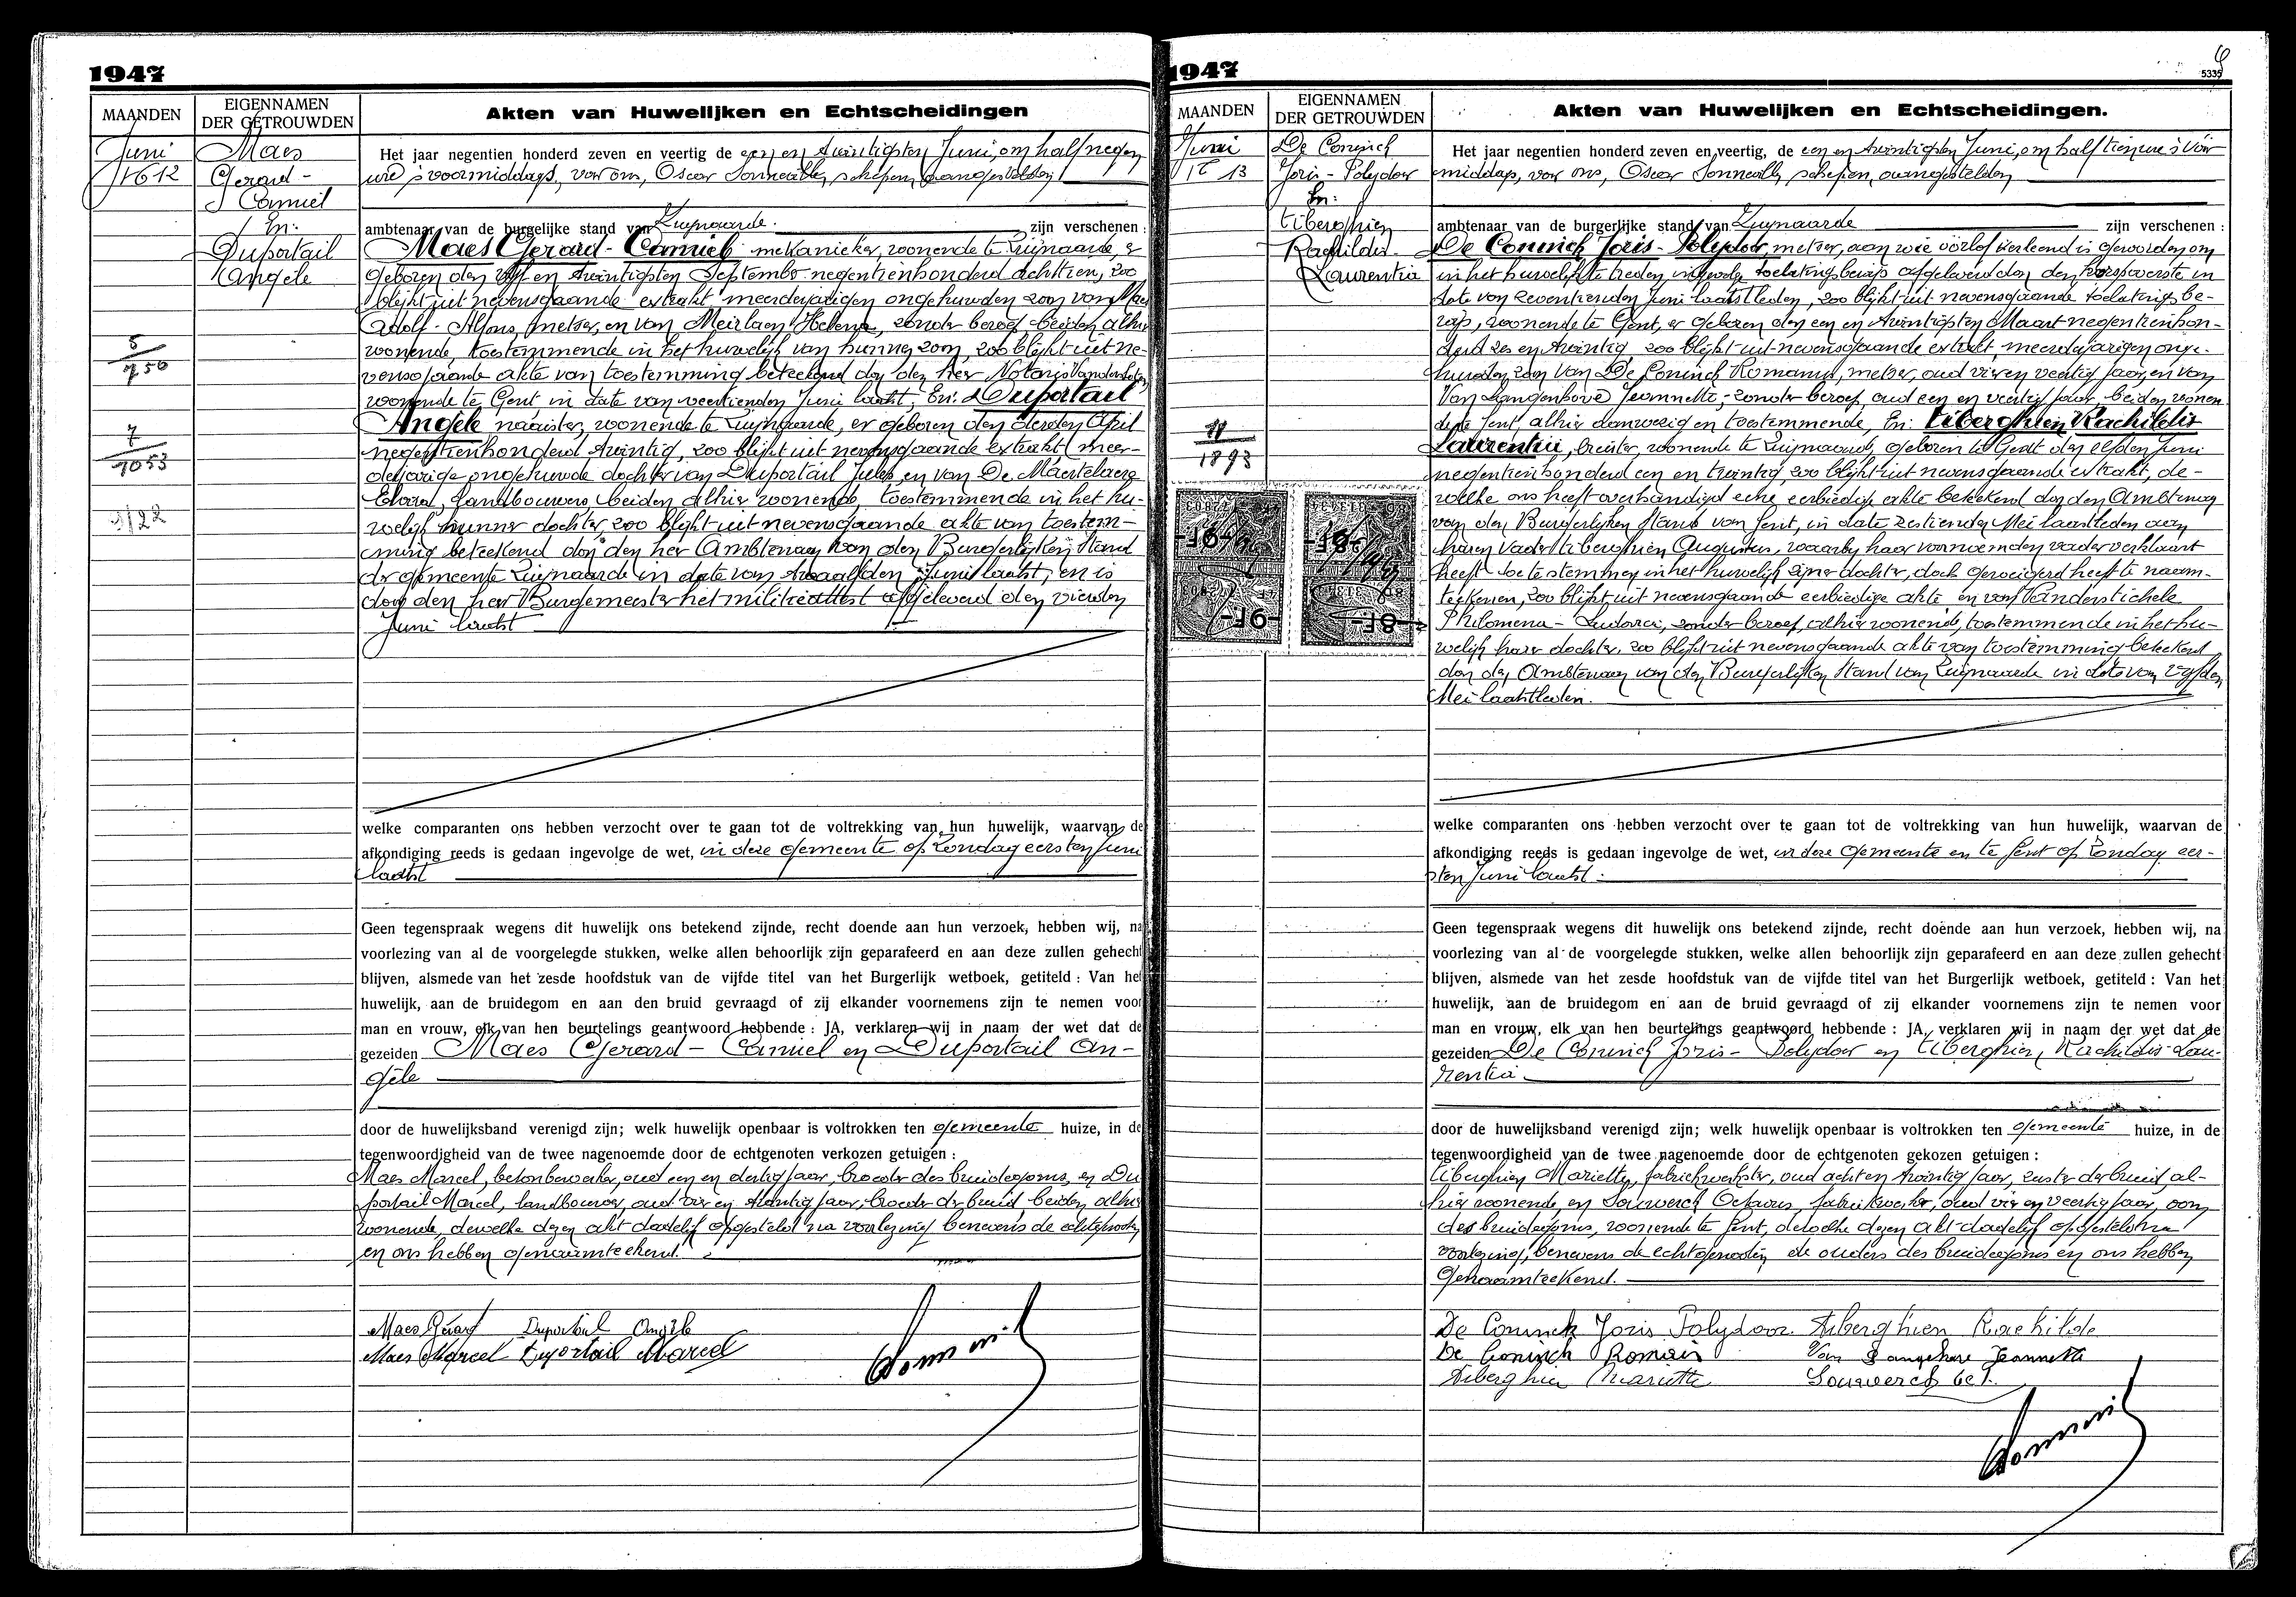 1947
MAANDEN
EIGENNAMEN
DER GETROUWDEN
Akten van Huwelijken en Echtscheidingen
Juni
N° 12
Maes
Gerard-
Camiel
En:
Duportail
Angèle
5/750
7/1053
Het jaar negentien honderd zeven en veertig de een en twintigsten Juni, om half negen
ure 's voormiddags, voor ons, Oscar Sonneville, schepen, aangestelden
ambtenaar van de burgelijke stand van Zwijnaarde zijn verschenen :
Maes Gerard-Camiel, mekanieker, wonende te Zwijnaarde, er
geboren den vijf en twintigsten September negentienhonderd achttien, zoo
blijkt uit nevensgaande extrakt, meerderjarigen ongehuwden zoon van Maes
Adolf-Alfons, metser, en van Meirlaen Helena, zonder beroep, beiden alhier
wonende, toestemmende in het huwelijk van hunnen zoon, zoo blijkt uit ne-
vensgaande akte van toestemming beteekend door den heer Notaris
wonende te Gent, in date van veertienden Juni laatst, En: Duportail
Angèle naaister, wonende te Zwijnaarde, er geboren den derden April
negentienhonderd twintig, zoo blijkt uit nevensgaande extrakt, meer-
derjarige ongehuwde dochter van Duportail Jules, en van De Maertelaere
Elvara, landbouwers beiden alhier wonende, toestemmende in het hu-
welijk hunner dochter, zoo blijkt uit nevensgaande akte van toestem-
ming beteekend door den heer Ambtenaar van den Burgerlijken Stand
der gemeente Zwijnaarde in date van twaalfden Juni laatst, en is
door den heer Burgemeester het militieattest afgeleverd den vierden
Juni laatst
welke comparanten ons hebben verzocht over te gaan tot de voltrekking van hun huwelijk, waarvan de
afkondiging reeds is gedaan ingevolge de wet, in deze gemeente op Zondag eersten Juni
laatst
Geen tegenspraak wegens dit huwelijk ons betekend zijnde, recht doende aan hun verzoek, hebben wij, na
voorlezing van al de voorgelegde stukken, welke allen behoorlijk zijn geparafeerd en aan deze zullen gehecht
blijven, alsmede van het zesde hoofdstuk van de vijfde titel van het Burgerlijk wetboek, getiteld : Van het
huwelijk, aan de bruidegom en aan den bruid gevraagd of zij elkander voornemens zijn te nemen voor
man en vrouw, elk van hen beurtelings geantwoord hebbende : JA, verklaren wij in naam der wet dat de
gezeiden Maes Gerard-Camiel en Duportail An-
gèle
door de huwelijksband verenigd zijn; welk huwelijk openbaar is voltrokken ten gemeente huize, in de
tegenwoordigheid van de twee nagenoemde door de echtgenoten verkozen getuigen :
Maes Marcel, betonbewerker, oud een en dertig jaar, broeder des bruidegoms, en Du
portail Marcel, landbouwer, oud vier en twintig jaar, broeder der bruid, beiden alhier
wonende, dewelke dezen akt dadelijk opgesteld na voorlezing benevens de echtgenooten
en ons hebben genaamteekend.
Maes Gérard Duportail Angèle
Maes Marcel Duportail Marcel
1947
5335
MAANDEN
EIGENNAMEN
DER GETROUWDEN
Akten van Huwelijken en Echtscheidingen.
Juni
N° 13
De Coninck
Joris-Polydoor
En:
Tiberghien
Rachildis-
Laurentia
11/1893
-9F-
-8F-
-9F-
-8F-
Het jaar negentien honderd zeven en veertig, de een en twintigsten Juni, om half tien ure 's voor
middags, voor ons, Oscar Sonneville, schepen, aangestelden
ambtenaar van de burgerlijke stand van Zwijnaarde zijn verschenen :
De Coninck Joris-Polydoor, metser, aan wie oorlof verleend is geworden om
in het huwelijk te treden, ingevolge toelatingsbewijs afgeleverd door den korpsoverste in
date van zeventienden Juni laatstleden, zoo blijkt uit nevensgaande toelatingsbe-
wijs, wonende te Gent, er geboren den een en twintigsten Maart negentienhon-
derd zes en twintig, zoo blijkt uit nevensgaande extrakt, meerderjarigen onge-
huwden zoon van De Coninck Romanus, metser, oud vier en veertig jaar, en van
Van Langenhove Jeannette, zonder beroep, oud een en veertig jaar, beiden wonen
de te Gent, alhier aanwezig en toestemmende, En: Tiberghien Rachildis
Laurentia, breister, wonende te Zwijnaarde, geboren te Gent den elfden Juni
negentienhonderd een en twintig, zoo blijkt uit nevensgaande extrakt, de-
welke ons heeft overhandigd eene eerbiedige akte betekend door den Ambtenaar
van den Burgerlijken Stand van Gent, in date zestienden Mei laatstleden aan
haren vader Tiberghien Augustus, waarby haar voornoemden vader verklaart
heeft toe te stemmen in het huwelijk zijner dochter, doch geweigerd heeft te naam-
teekenen, zoo blijkt uit nevensgaande eerbiedige akte en van Vanderstichele
Philomena-Ludovica, zonder beroep, alhier wonende, toestemmende in het hu-
welijk harer dochter, zoo blijkt uit nevensgaande akte van toestemming betekend
door den Ambtenaar van den Burgerlijken Stand van Zwijnaarde in date van vijfden
Mei laatstleden.
welke comparanten ons hebben verzocht over te gaan tot de voltrekking van hun huwelijk, waarvan de
afkondiging reeds is gedaan ingevolge de wet, in deze gemeente en te Gent op Zondag eer-
sten Juni laatst.
Geen tegenspraak wegens dit huwelijk ons betekend zijnde, recht doende aan hun verzoek, hebben wij, na
voorlezing van al de voorgelegde stukken, welke allen behoorlijk zijn geparafeerd en aan deze zullen gehecht
blijven, alsmede van het zesde hoofdstuk van de vijfde titel van het Burgerlijk wetboek, getiteld : Van het
huwelijk, aan de bruidegom en aan de bruid gevraagd of zij elkander voornemens zijn te nemen voor
man en vrouw, elk van hen beurtelings geantwoord hebbende : JA, verklaren wij in naam der wet dat de
gezeiden De Coninck Joris-Polydoor en Tiberghien Rachildis-Lau-
rentia
door de huwelijksband verenigd zijn; welk huwelijk openbaar is voltrokken ten gemeente huize, in de
tegenwoordigheid van de twee nagenoemde door de echtgenoten gekozen getuigen :
Tiberghien Mariette, fabriekwerkster, oud acht en twintig jaar, zuster der bruid, al-
hier wonende, en Souwerck Octavus, fabriekwerker, oud vier en veertig jaar, oom
des bruidegoms, wonende te Gent, dewelke dezen akt dadelijk opgesteld na
voorlezing, benevens de echtgenooten de ouders des bruidegoms en ons hebben
genaamteekend.
De Coninck Joris Polydoor Tiberghien Rachilde
De Coninck Romain Van Langehove Jeannette
Tiberghien Mariette Souwerck Oct.